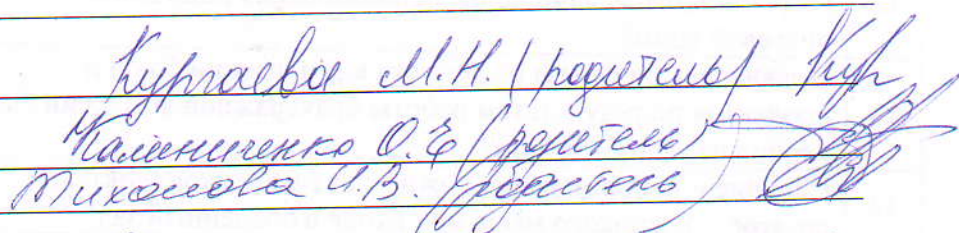 Кургаева М.Н. (родитель) Кур
Калиниченко О.Е (родитель)
Тихонова И.В. (родитель)